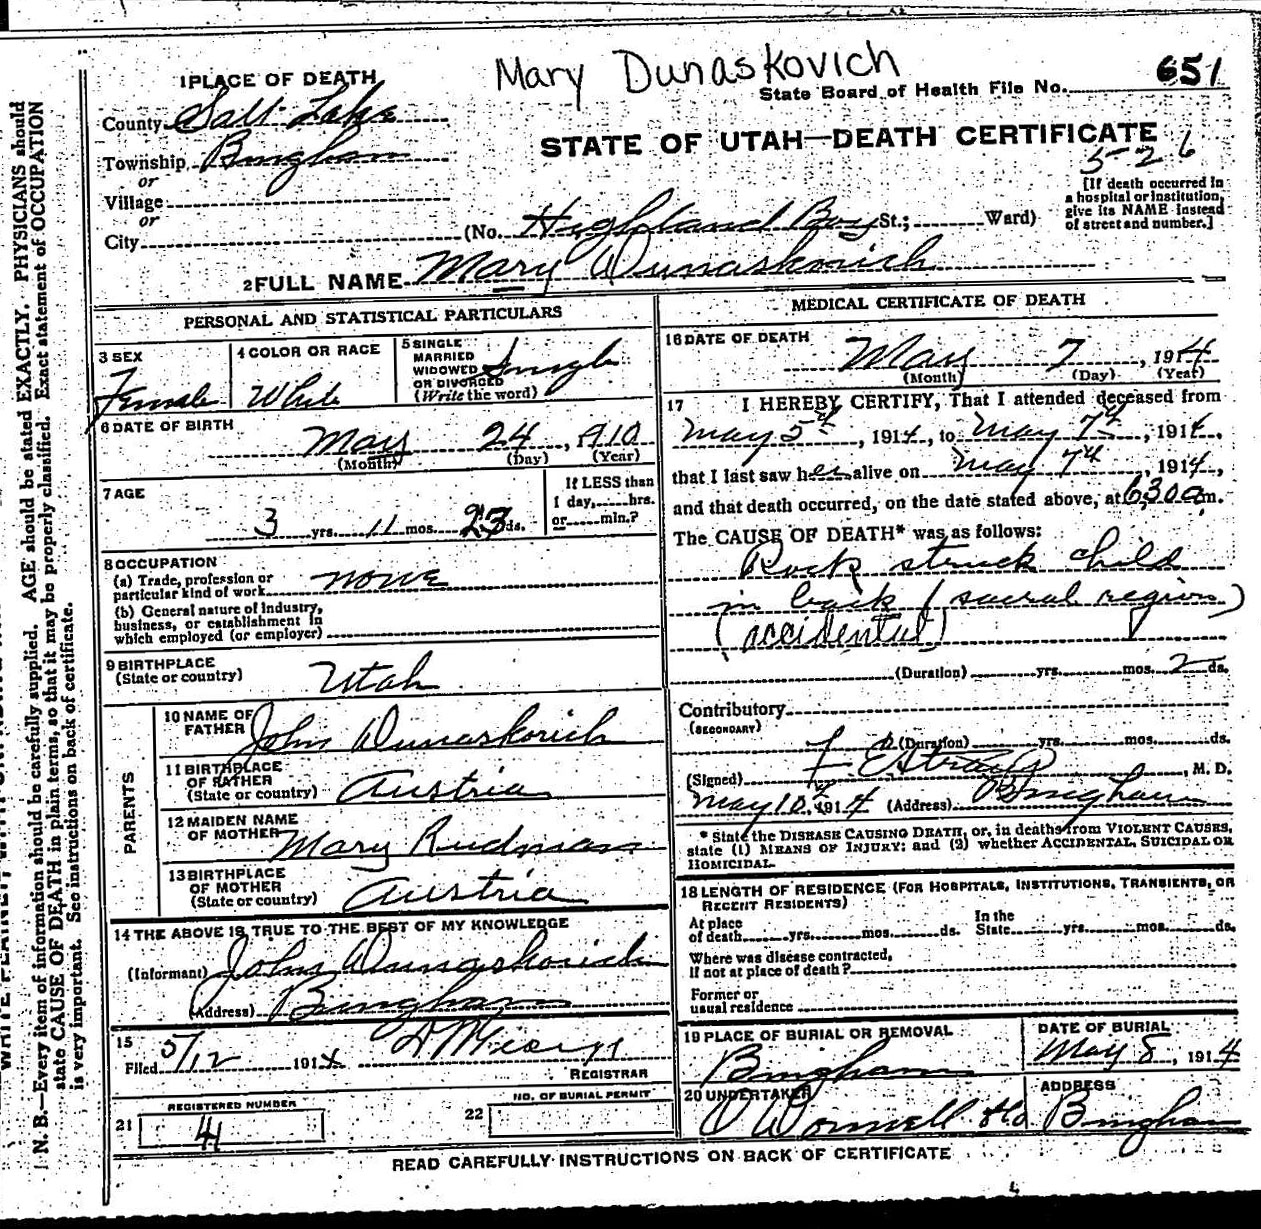 Mary Dunaskovich
1 PLACE OF DEATH
State Board of Health File No. 651
County Salt Lake
STATE OF UTAH—DEATH CERTIFICATE
Township Bingham
5-26
or
Village
or
City
(No. Highland Boy St.; Ward)
[If death occurred in
a hospital or institution,
give its NAME instead
of street and number.]
2 FULL NAME Mary Dunaskovich
PERSONAL AND STATISTICAL PARTICULARS
3 SEX
Female
4 COLOR OR RACE
White
5 SINGLE
MARRIED
WIDOWED
OR DIVORCED
(Write the word)
Single
6 DATE OF BIRTH
May 24, 1910
(Month) (Day) (Year)
7 AGE
3 yrs. 11 mos. 23 ds.
If LESS than
1 day, hrs.
or min.?
8 OCCUPATION
(a) Trade, profession or
particular kind of work none
(b) General nature of industry,
business, or establishment in
which employed (or employer)
9 BIRTHPLACE
(State or country) Utah
PARENTS
10 NAME OF
FATHER John Dunaskovich
11 BIRTHPLACE
OF FATHER
(State or country) Austria
12 MAIDEN NAME
OF MOTHER Mary Rudman
13 BIRTHPLACE
OF MOTHER
(State or country) Austria
14 THE ABOVE IS TRUE TO THE BEST OF MY KNOWLEDGE
(Informant) John Dunaskovich
(Address) Bingham
15
Filed 5/12 1914
REGISTRAR
REGISTERED NUMBER
21 41
NO. OF BURIAL PERMIT
22
MEDICAL CERTIFICATE OF DEATH
16 DATE OF DEATH
May 7, 1914
(Month) (Day) (Year)
17 I HEREBY CERTIFY, That I attended deceased from
May 5th, 1914, to May 7th, 1914,
that I last saw her alive on May 7th, 1914,
and that death occurred, on the date stated above, at 6:30 a m.
The CAUSE OF DEATH* was as follows:
Rock struck child
in back (sacral region)
(accidental)
(Duration) yrs. mos. 2 ds.
Contributory
(SECONDARY)
(Duration) yrs. mos. ds.
(Signed) F E Straup, M. D.
May 10th, 1914 (Address) Bingham
* State the DISEASE CAUSING DEATH, or, in deaths from VIOLENT CAUSES,
state (1) MEANS OF INJURY; and (2) whether ACCIDENTAL, SUICIDAL OR
HOMICIDAL.
18 LENGTH OF RESIDENCE (FOR HOSPITALS, INSTITUTIONS, TRANSIENTS, OR
RECENT RESIDENTS)
At place
of death yrs. mos. ds.
In the
State yrs. mos. ds.
Where was disease contracted,
if not at place of death?
Former or
usual residence
19 PLACE OF BURIAL OR REMOVAL
Bingham
DATE OF BURIAL
May 8, 1914
20 UNDERTAKER
O'Donnell & Co
ADDRESS
Bingham
READ CAREFULLY INSTRUCTIONS ON BACK OF CERTIFICATE
N. B.—Every item of information should be carefully supplied. AGE should be stated EXACTLY. PHYSICIANS should
state CAUSE OF DEATH in plain terms, so that it may be properly classified. Exact statement of OCCUPATION
is very important. See instructions on back of certificate.